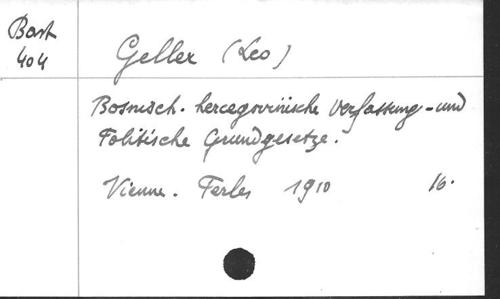 Bast
404
Geller (Leo)
Bosnisch-hercegovinische Verfassung-und
Politische Grundgesetze.
Vienne. Perles 1910 16.